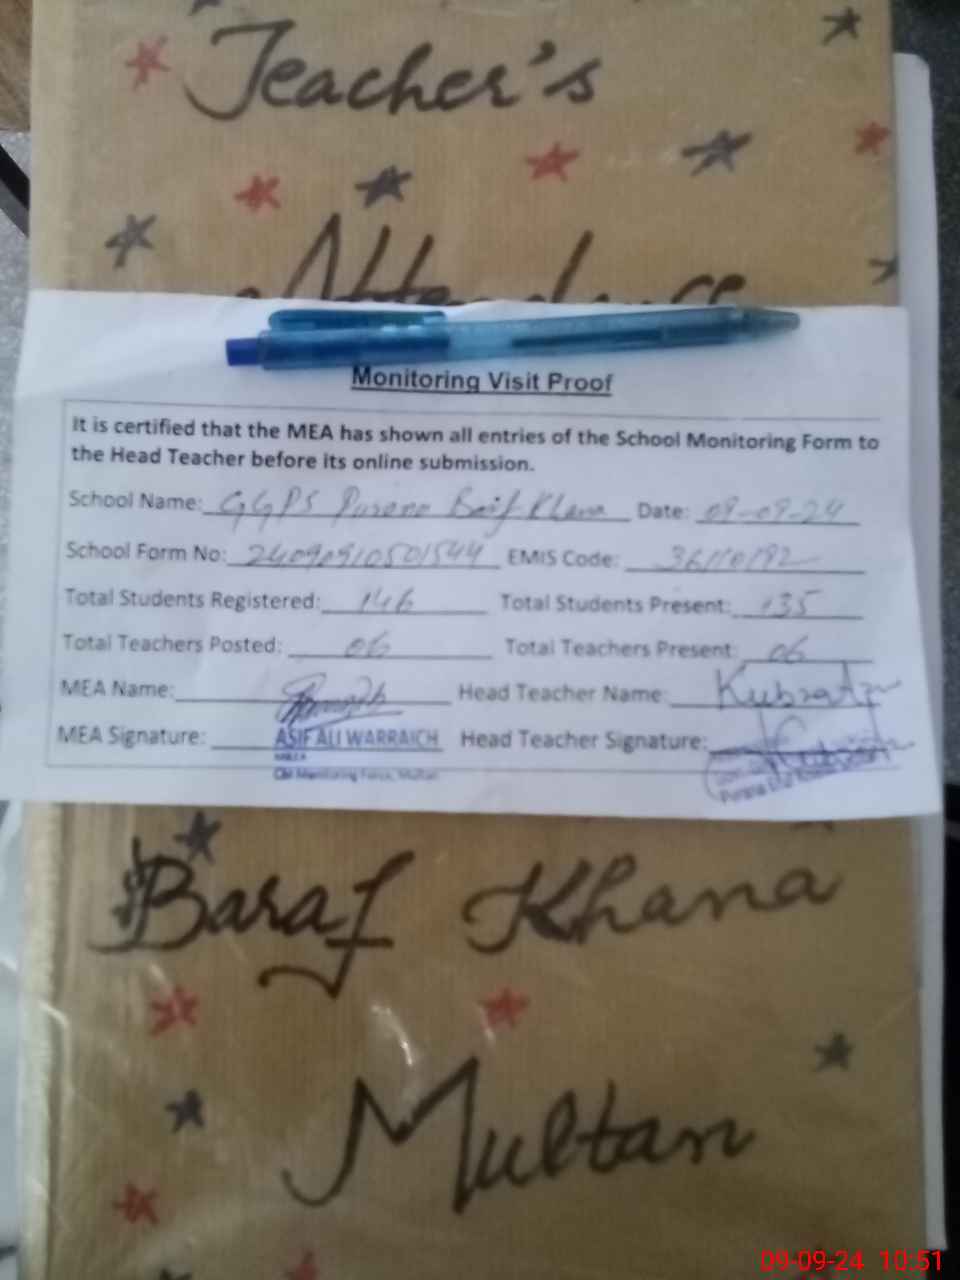 Teacher's
Attendance
Monitoring Visit Proof
It is certified that the MEA has shown all entries of the School Monitoring Form to
the Head Teacher before its online submission.
School Name: GGPS Purana Barf Khana Date: 09-09-24
School Form No: EMIS Code:
Total Students Registered: 146 Total Students Present: 135
Total Teachers Posted: 06 Total Teachers Present: 06
MEA Name: Head Teacher Name: Kubra
MEA Signature: ASIF ALI WARRAICH Head Teacher Signature:
MEA
CM Monitoring Force, Multan
Baraf Khana
Multan
09-09-24 10:51